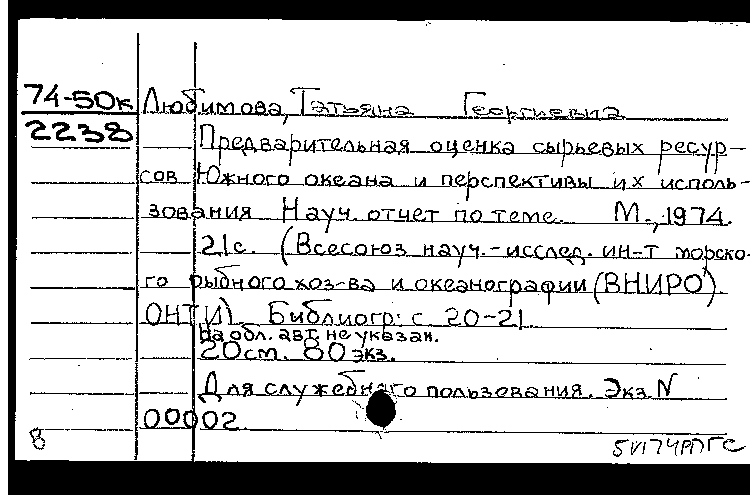 74-50к Любимова, Татьяна Георгиевна
2238 Предварительная оценка сырьевых ресур-
сов Южного океана и перспективы их исполь-
зования Науч. отчет по теме. М., 1974.
21с. (Всесоюз науч.-исслед. ин-т морско-
го рыбного хоз-ва и океанографии (ВНИРО).
ОНТИ) Библиогр: с. 20-21
На обл. авт. не указан.
20см. 80 экз.
Для служебного пользования. Экз N
00002
8